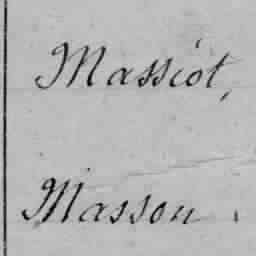 Massiot,
Masson.